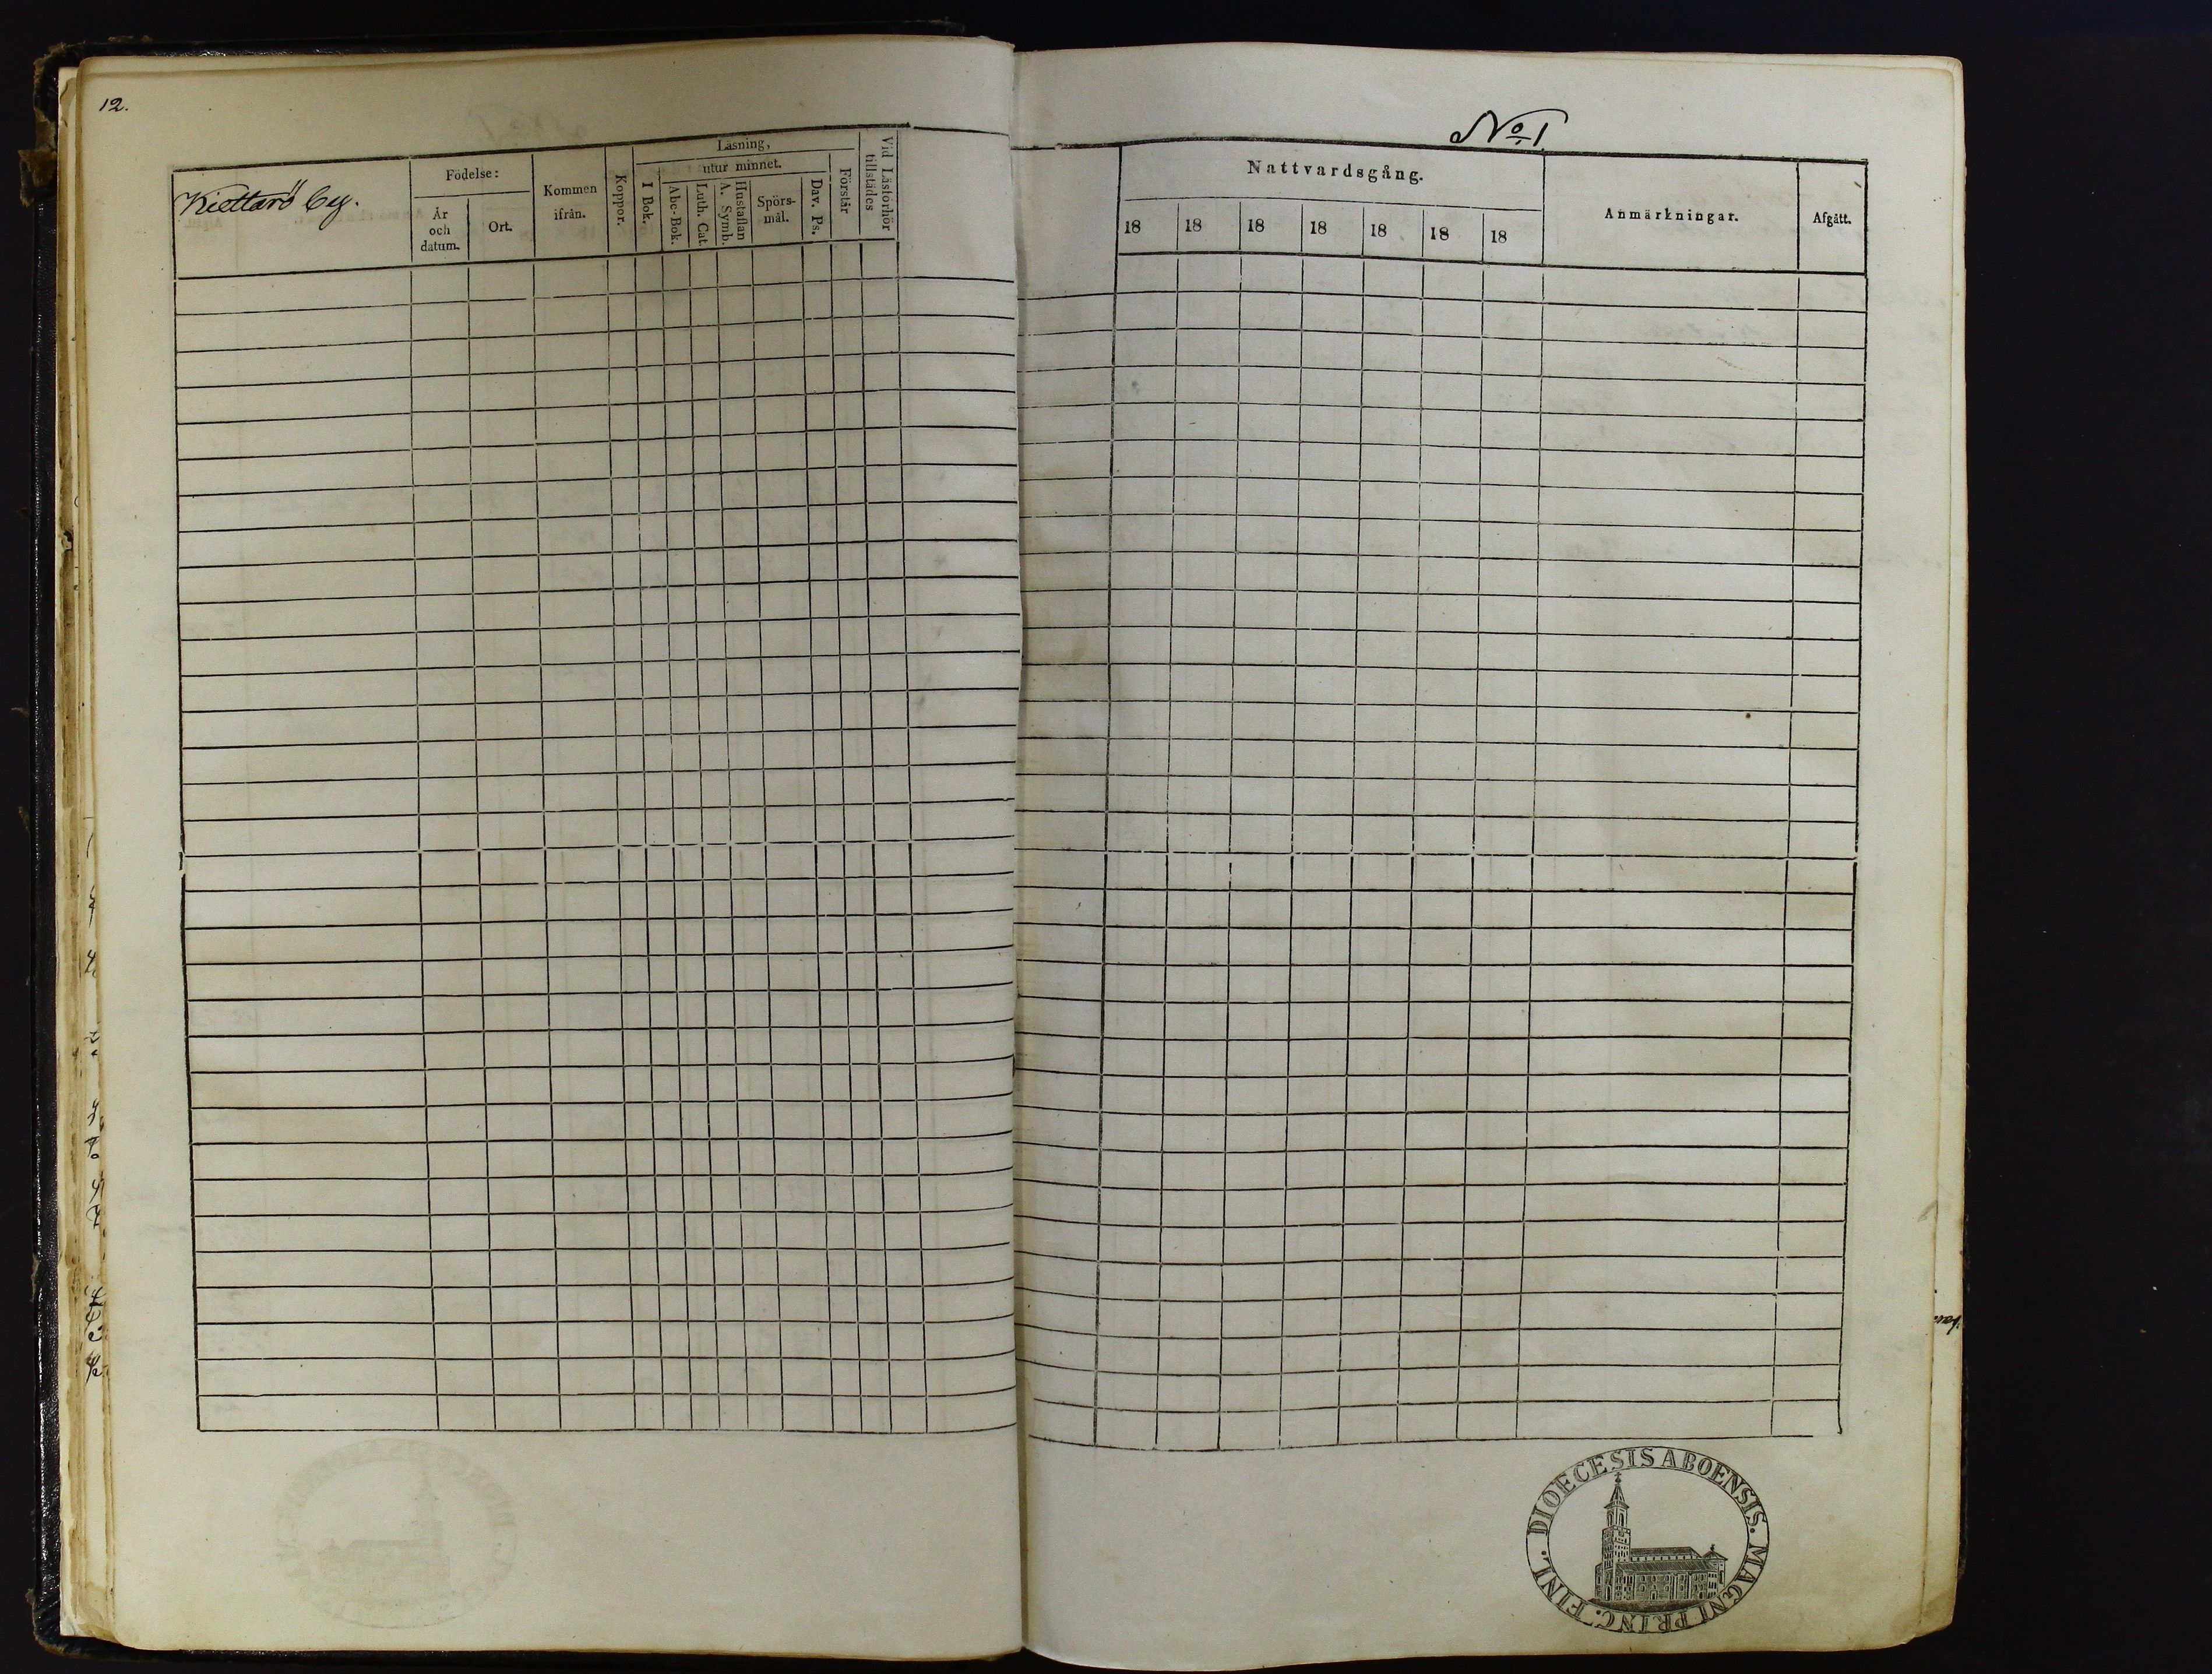 12.
Kiettarö by.
Födelse:
År
och
datum.
Ort.
Kommen
ifrån.
Koppor.
Läsning,
utur minnet.
I Bok.
Abc-Bok.
Luth. Cat.
Hustaflan
A. Symb.
Spörs-
mål.
Dav. Ps.
Förstår
Vid Läsförhör
tillstädes
No 1.
Nattvardsgång.
18 18 18 18 18 18 18
Anmärkningar.
Afgått.
DIOECESIS ABOENSIS. MAGNI PRINC. FINL.